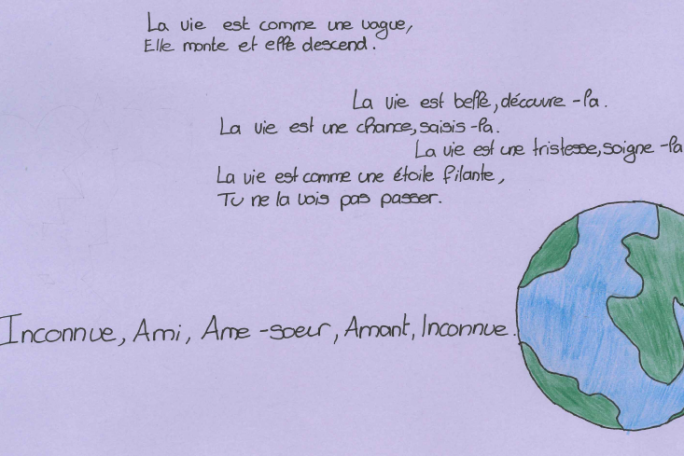 La vie est comme une vague,
Elle monte et elle descend.
La vie est belle, découvre-la.
La vie est une chance, saisis-la.
La vie est une tristesse, soigne-la
La vie est comme une étoile filante,
Tu ne la vois pas passer.
Inconnue, Ami, Ame-soeur, Amant, Inconnue.